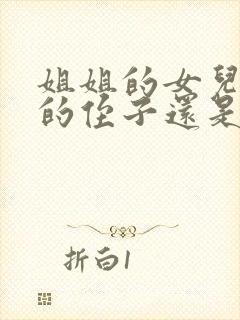 姐姐的女兒
的侄子還是
折白1